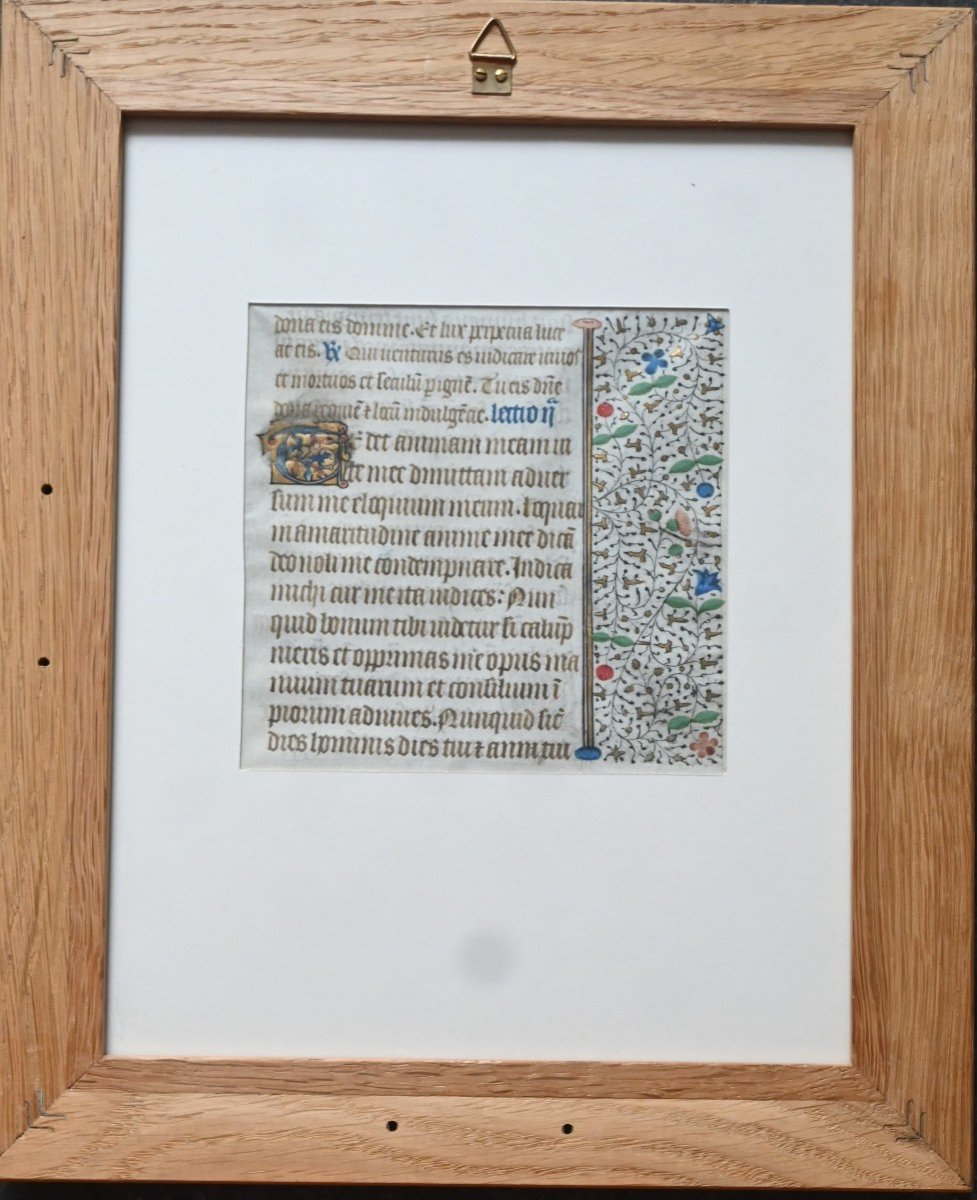 dona eis domine. Et lux perpetua luce
at eis. ℟ Qui uenturus es iudicare uiuos
et mortuos et seculũ p ignẽ. Tu eis dñe
dona requiẽ ⁊ locũ indulgẽtie. lectio ij
Tedet animam meam ui
te mee dimittam aduer
sum me eloquium meum. Loquar
in amaritudine anime mee dicã
deo noli me condempnare. Indica
michi cur me ita iudices: Nun
quid bonum tibi uidetur si calũp
nieris et opprimas me opus ma
nuum tuarum et consilium ĩ
piorum adiuues. Nunquid sic̃
dies hominis dies tui ⁊ anni tui